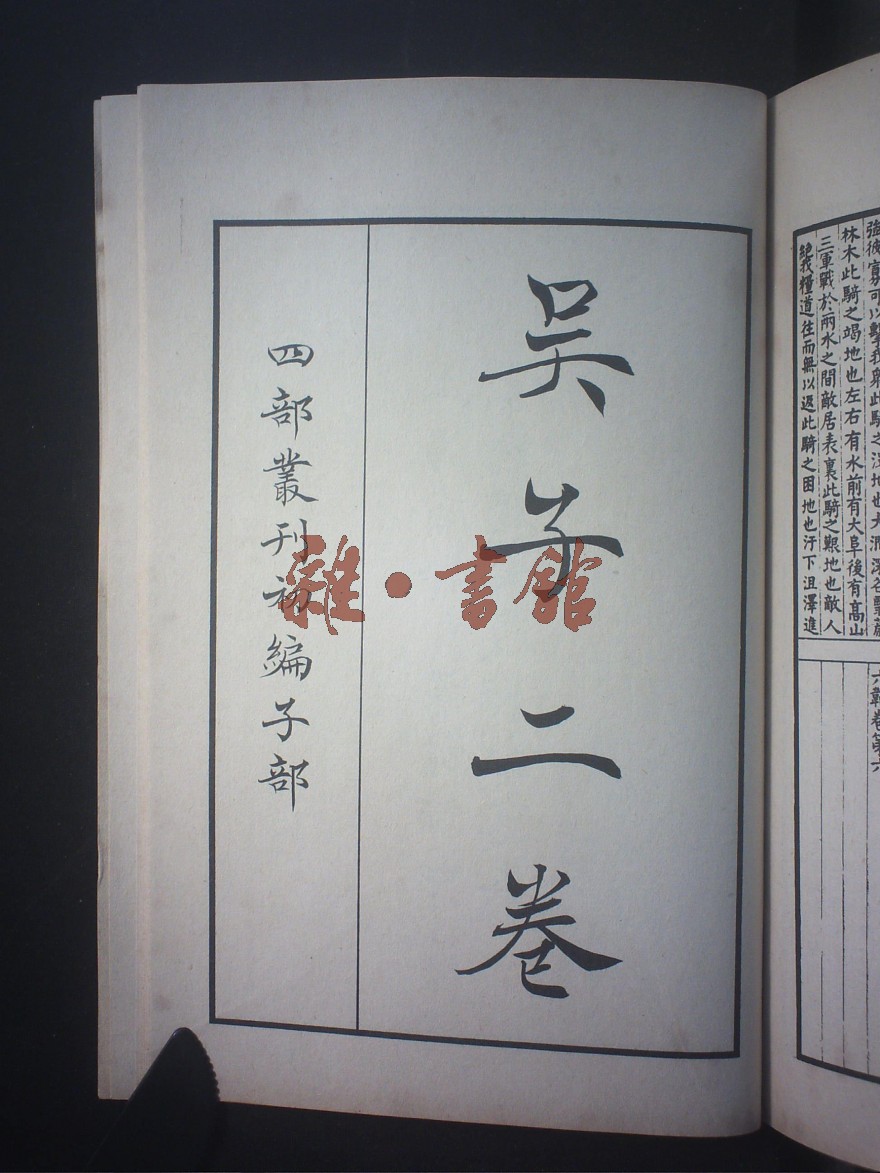 強彼寡可以擊我衆此騎之沒地也大澗深谷翳蔚
林木此騎之竭地也左右有水前有大阜後有高山
三軍戰於兩水之間敵居表裏此騎之艱地也敵人
絕我糧道往而無以返此騎之困地也汙下沮澤進
六韜卷第六
吳子二卷
四部叢刊初編子部
雜·書館